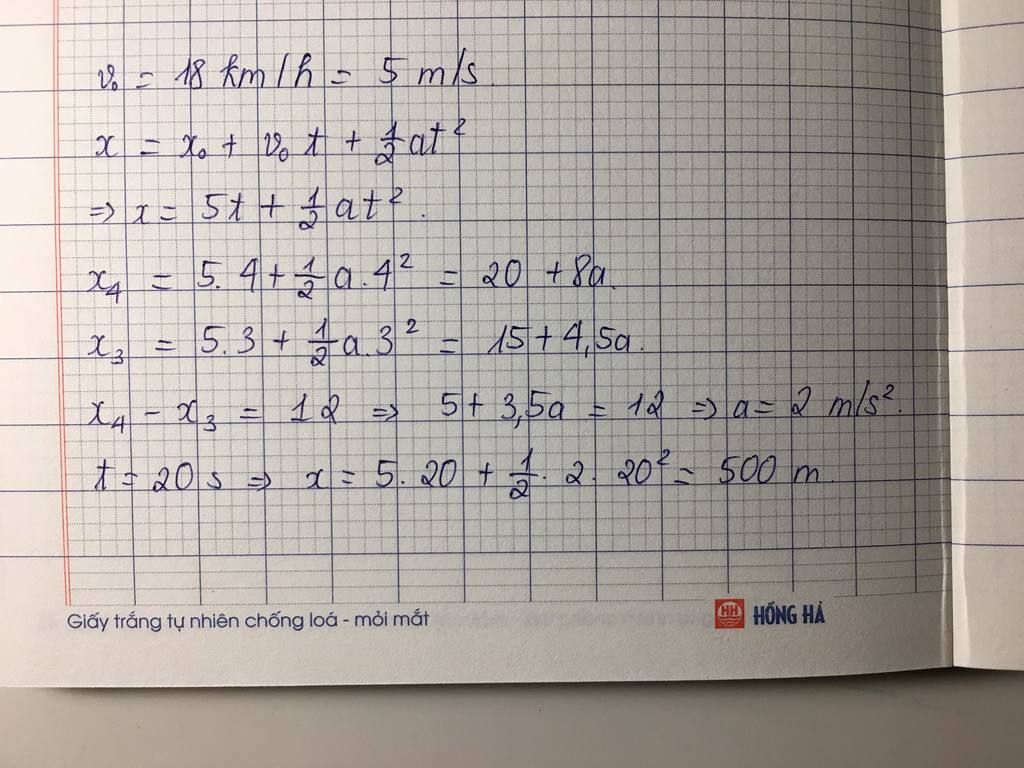 v₀ = 18 km/h = 5 m/s.
x = x₀ + v₀ t + 1/2 at²
=> x = 5t + 1/2 at².
x₄ = 5.4 + 1/2 a.4² = 20 + 8a.
x₃ = 5.3 + 1/2 a.3² = 15 + 4,5a.
x₄ - x₃ = 12 => 5 + 3,5a = 12 => a = 2 m/s².
t = 20 s => x = 5.20 + 1/2 . 2. 20² = 500 m.
Giấy trắng tự nhiên chống loá - mỏi mắt HH HỒNG HÀ